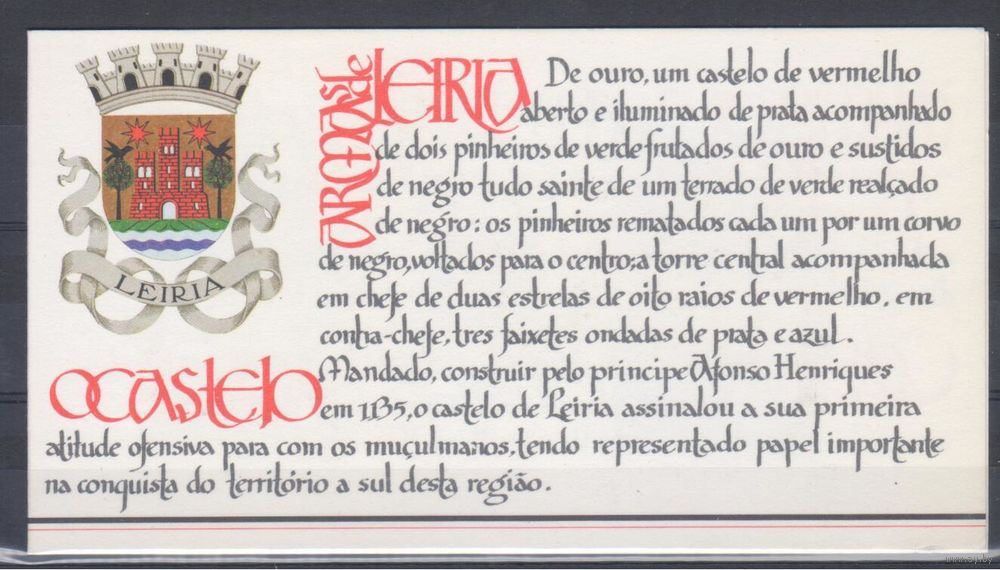 ARMAS de LEIRIA
De ouro, um castelo de vermelho
aberto e iluminado de prata acompanhado
de dois pinheiros de verde frutados de ouro e sustidos
de negro tudo sainte de um terrado de verde realçado
de negro: os pinheiros rematados cada um por um corvo
de negro, voltados para o centro; a torre central acompanhada
em chefe de duas estrelas de oito raios de vermelho, em
contra-chefe, tres faixetes ondadas de prata e azul.
LEIRIA
O CASTELO
Mandado, construir pelo principe Afonso Henriques
em 1135, o castelo de Leiria assinalou a sua primeira
atitude ofensiva para com os muçulmanos, tendo representado papel importante
na conquista do território a sul desta região.